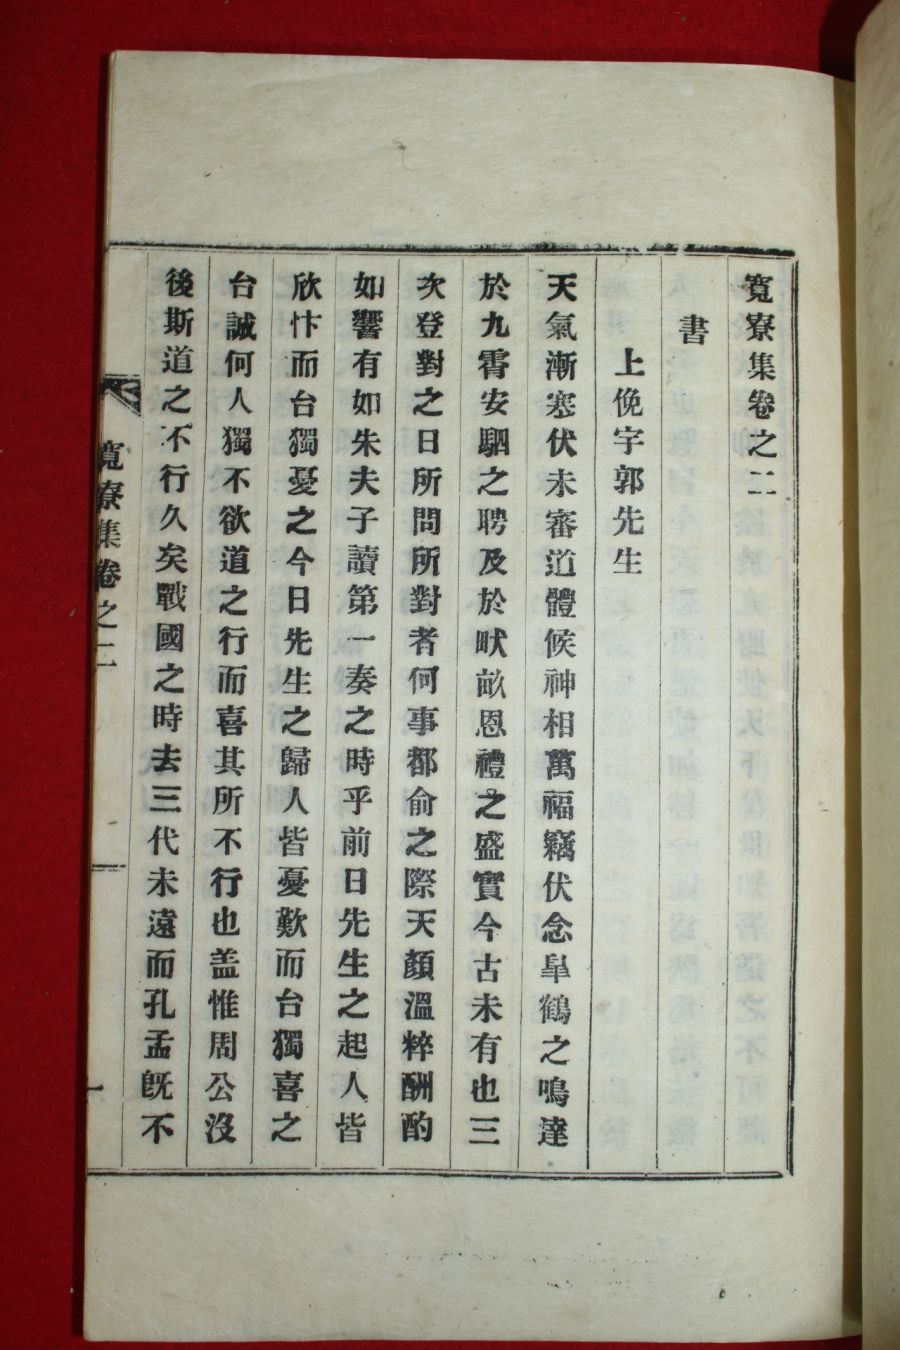 寬寮集卷之二
書
上俛宇郭先生
天氣漸塞伏未審道體候神相萬福竊伏念皐鶴之鳴達
於九霄安駟之聘及於畎畝恩禮之盛實今古未有也三
次登對之日所問所對者何事都俞之際天顏溫粹酬酌
如響有如朱夫子讀第一奏之時乎前日先生之起人皆
欣忭而台獨憂之今日先生之歸人皆憂歎而台獨喜之
台誠何人獨不欲道之行而喜其所不行也盖惟周公沒
後斯道之不行久矣戰國之時去三代未遠而孔孟旣不
寬寮集卷之二
一